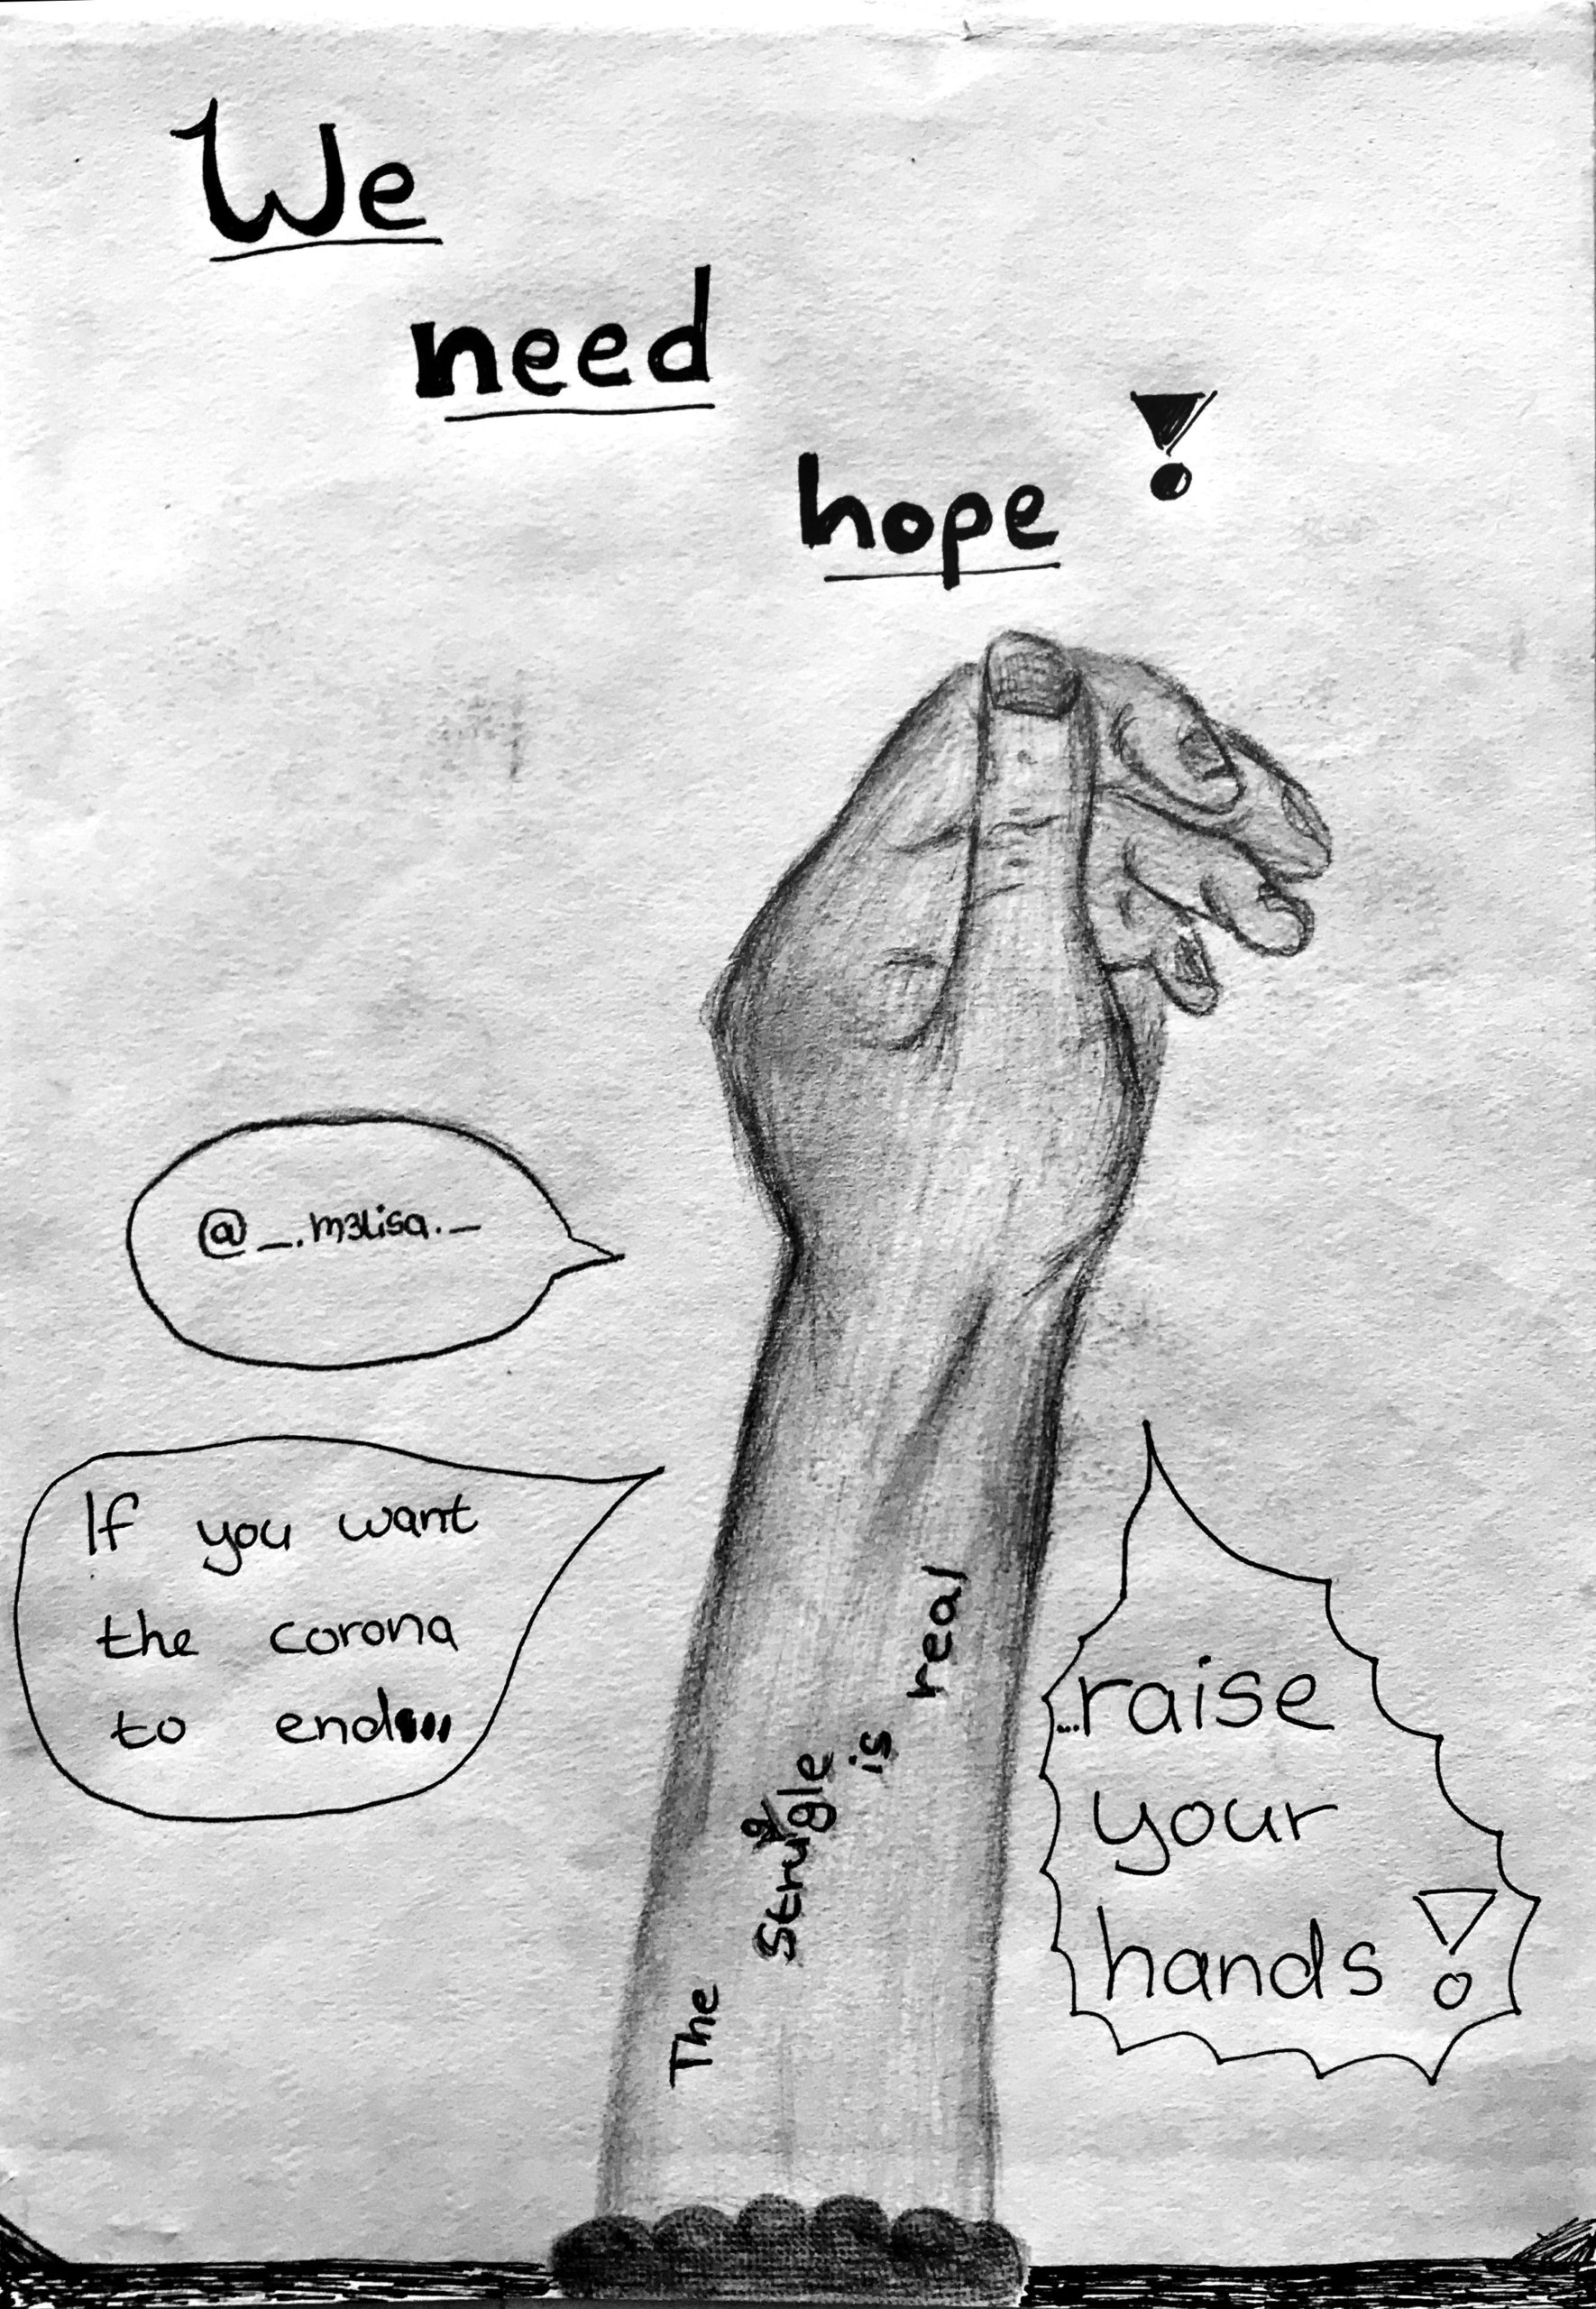 We
need
hope !
@_.m3lisa._
If you want
the corona
to end...
The Struggle is real
...raise
your
hands !